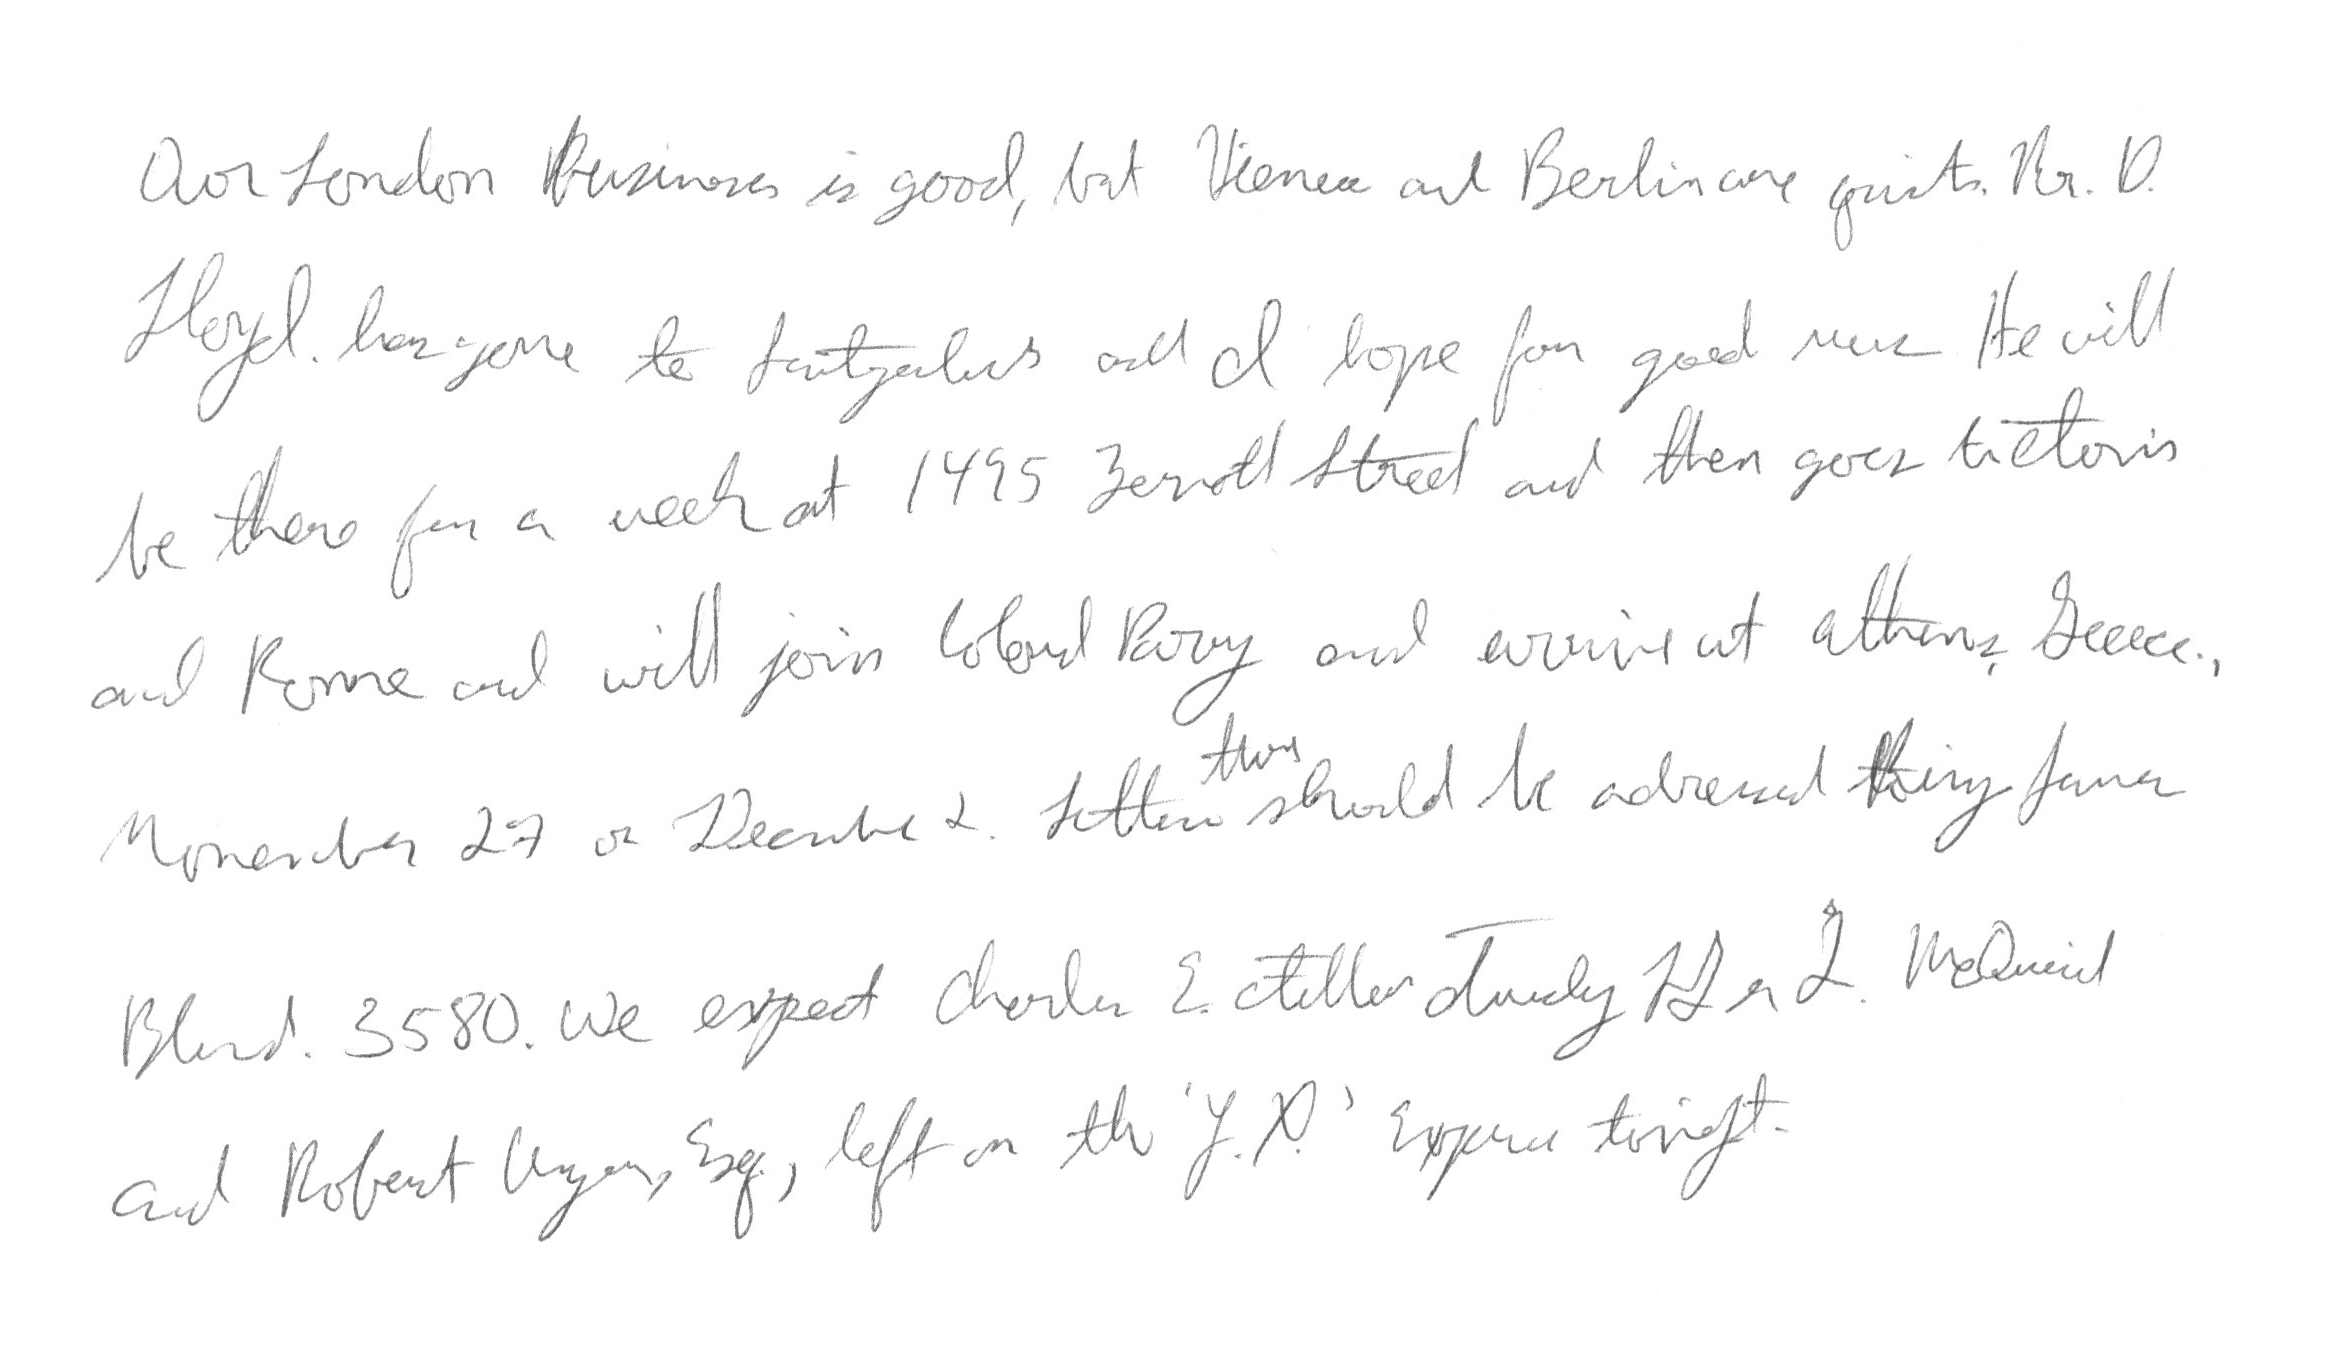 Our London Business is good, but Vienna and Berlin are quiet. Mr. D.
Lloyd. has gone to and I hope for good news He will
be there for a week at 1495 Zermott Street and then goes to
and Rome and will join Colonel Parry and arrive at Athens, Greece.,
November 27 or December 2. Letters there should be adressed King James
Blvd. 3580. We expect Charles E. Tuesday McQuaid
and Robert Unger, Esq., left on the 'Y.X.' Express tonight.